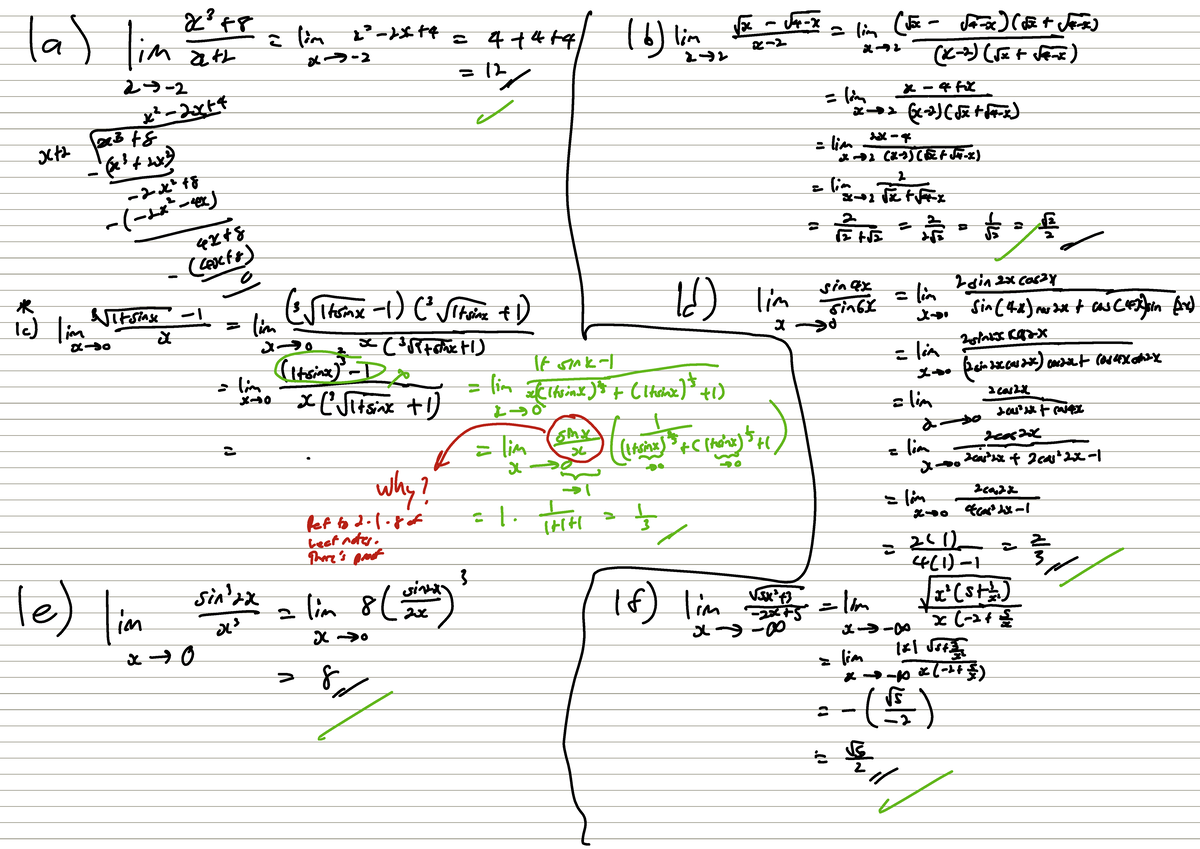 1a) lim x→-2 (x³+8)/(x+2) = lim x→-2 x²-2x+4 = 4+4+4
= 12
x²-2x+4
x+2 √ x³+8
- (x³+2x²)
-2x²+8
- (-2x²-4x)
4x+8
- (4x+8)
0
1b) lim x→2 (√x - √(4-x))/(x-2) = lim x→2 (√x - √(4-x))(√x + √(4-x))/((x-2)(√x + √(4-x)))
= lim x→2 (x-4+x)/((x-2)(√x+√(4-x)))
= lim x→2 (2x-4)/((x-2)(√x+√(4-x)))
= lim x→2 2/(√x+√(4-x))
= 2/(√2+√2) = 2/(2√2) = 1/√2 = √2/2
*
1c) lim x→0 (³√(1+sinx) - 1)/x = lim x→0 (³√(1+sinx) - 1)(³√(1+sinx) + 1)/(x(³√(1+sinx)+1))
= lim x→0 ((1+sinx)^(2/3) - 1)/(x(³√(1+sinx) + 1))
=
= lim x→0 (1+sinx-1)/(x((1+sinx)^(2/3) + (1+sinx)^(1/3) + 1))
= lim x→0 (sinx/x) (1/((1+sinx)^(2/3) + (1+sinx)^(1/3) + 1))
→1 →0 →0
= 1 · 1/(1+1+1) = 1/3
Why?
Ref to 2.1.8 of
Lect notes.
There's proof
1d) lim x→0 sin4x/sin6x = lim x→0 2sin2xcos2x/(sin(4x)cos2x + cos(4x)sin(2x))
= lim x→0 2sin2xcos2x/((2sin2xcos2x)cos2x + cos4xsin2x)
= lim x→0 2cos2x/(2cos²2x + cos4x)
= lim x→0 2cos2x/(2cos²2x + 2cos²2x-1)
= lim x→0 2cos2x/(4cos²2x-1)
= 2(1)/(4(1)-1) = 2/3
1e) lim x→0 sin³2x/x³ = lim x→0 8(sin2x/2x)³
= 8
1f) lim x→-∞ √(5x²+3)/(-2x+5) = lim x→-∞ √(x²(5+3/x²))/(x(-2+5/x)
= lim x→-∞ |x|√(5+3/x²)/(x(-2+5/x))
= -(√5/-2)
= √5/2